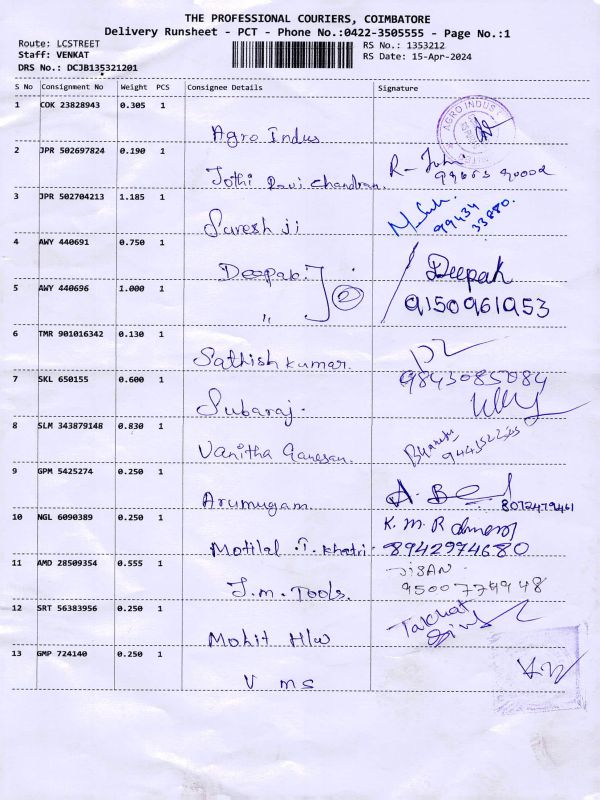 THE PROFESSIONAL COURIERS, COIMBATORE
Delivery Runsheet - PCT - Phone No.:0422-3505555 - Page No.:1
Route: LCSTREET
RS No.: 1353212
Staff: VENKAT
RS Date: 15-Apr-2024
DRS No.: DCJB135321201
S No Consignment No Weight PCS Consignee Details Signature
1 COK 23828943 0.305 1
Agro Indus
AGRO INDUST
2 JPR 502697824 0.190 1
Jothi Ravi chandran.
R-John
3 JPR 502704213 1.185 1
Suresh ji
99434
33880.
4 AWY 440691 0.750 1
Deepak.
2
Deepak
5 AWY 440696 1.000 1
"
9150961953
6 TMR 901016342 0.130 1
Sathish kumar.
9843085084
7 SKL 650155 0.600 1
Subaraj.
8 SLM 343879148 0.830 1
Vanitha Ganesan.
9 GPM 5425274 0.250 1
Arumugam.
8072479461
10 NGL 6090389 0.250 1
Motilal .T. khatri.
K.M.R
8942974680
11 AMD 28509354 0.555 1
J.m. Tools.
JISAN
12 SRT 56383956 0.250 1
Mohit H/w
Takhat
13 GMP 724140 0.250 1
V ms